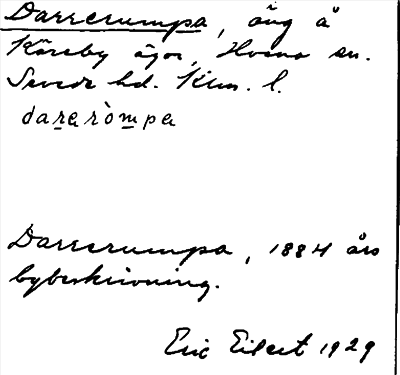 Darrerumpa, äng å
Kåreby ägor, Hvena sn.
Sevede hd. Klm. l.
dararòmpa
Darrerumpa, 1884 års
bybeskrivning.
Eric Eilert 1929